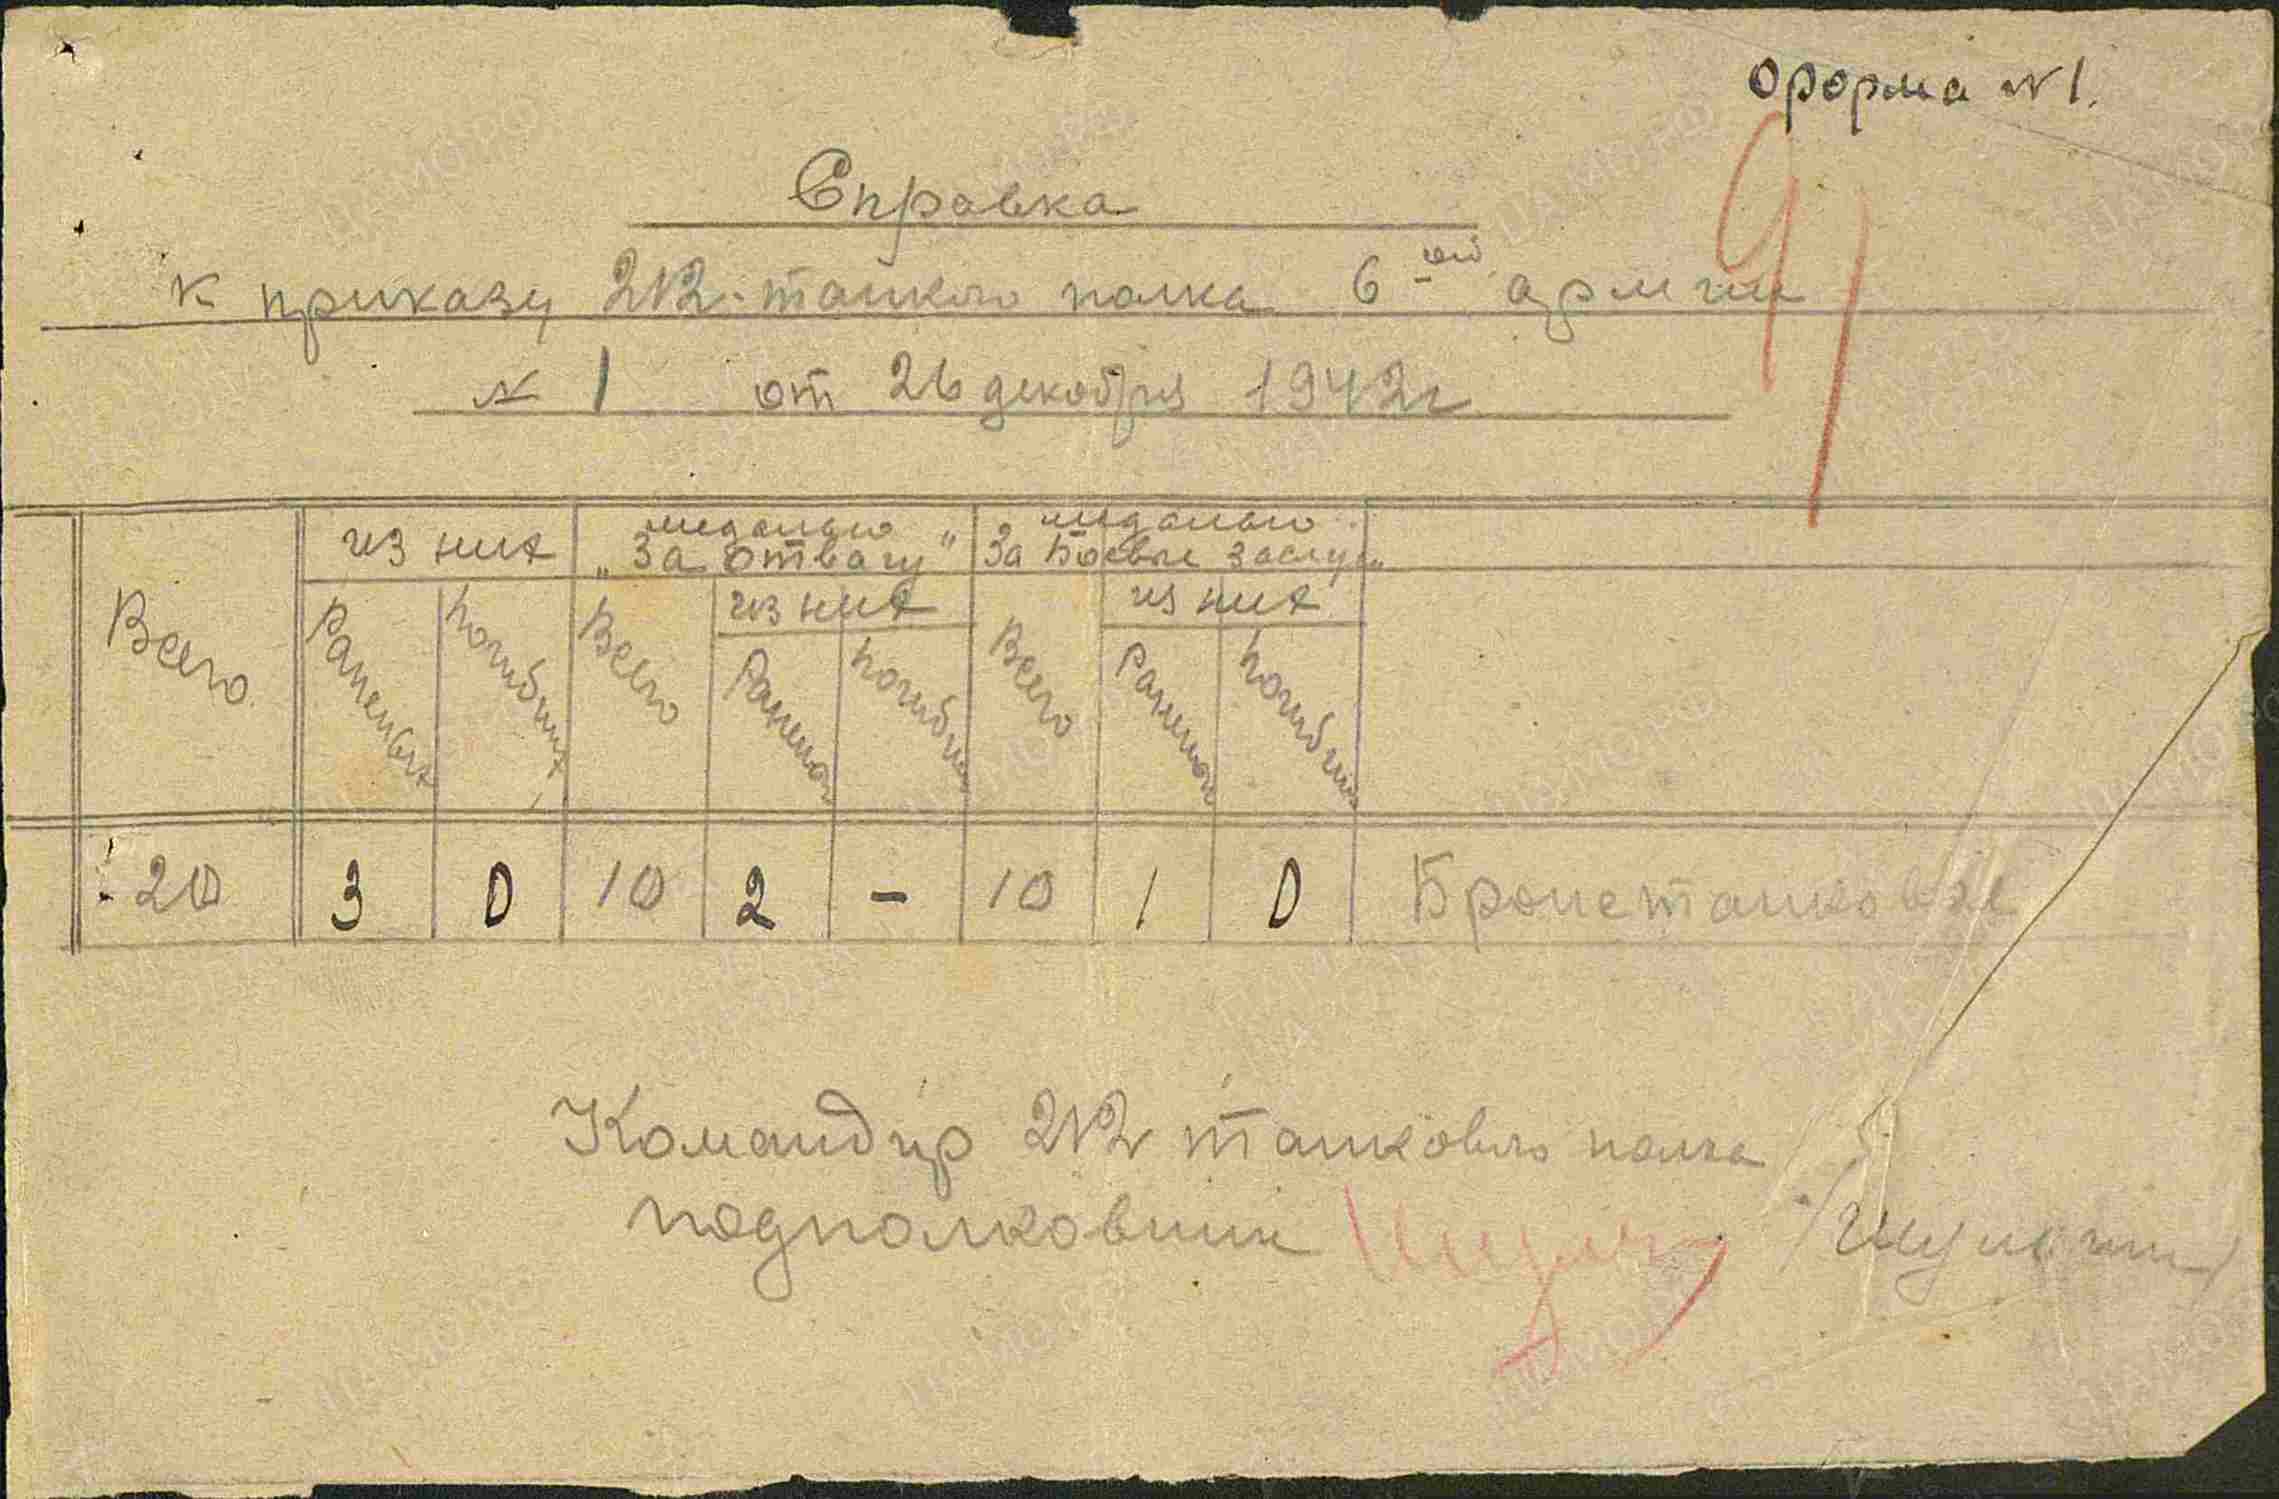 форма №1.
91
Справка
к приказу 212 танкого полка 6-ой армии
№ 1 от 26 декабря 1942г
Всего
из них
Раненых
Погибших
медалью
„За отвагу"
Всего
из них
Погибш
медалью
За Боевые заслуг„
Всего
из них
20 3 0 10 2 - 10 1 0 Бронетанковые
Командир 212 танкового полка
подполковник /Шульгин/